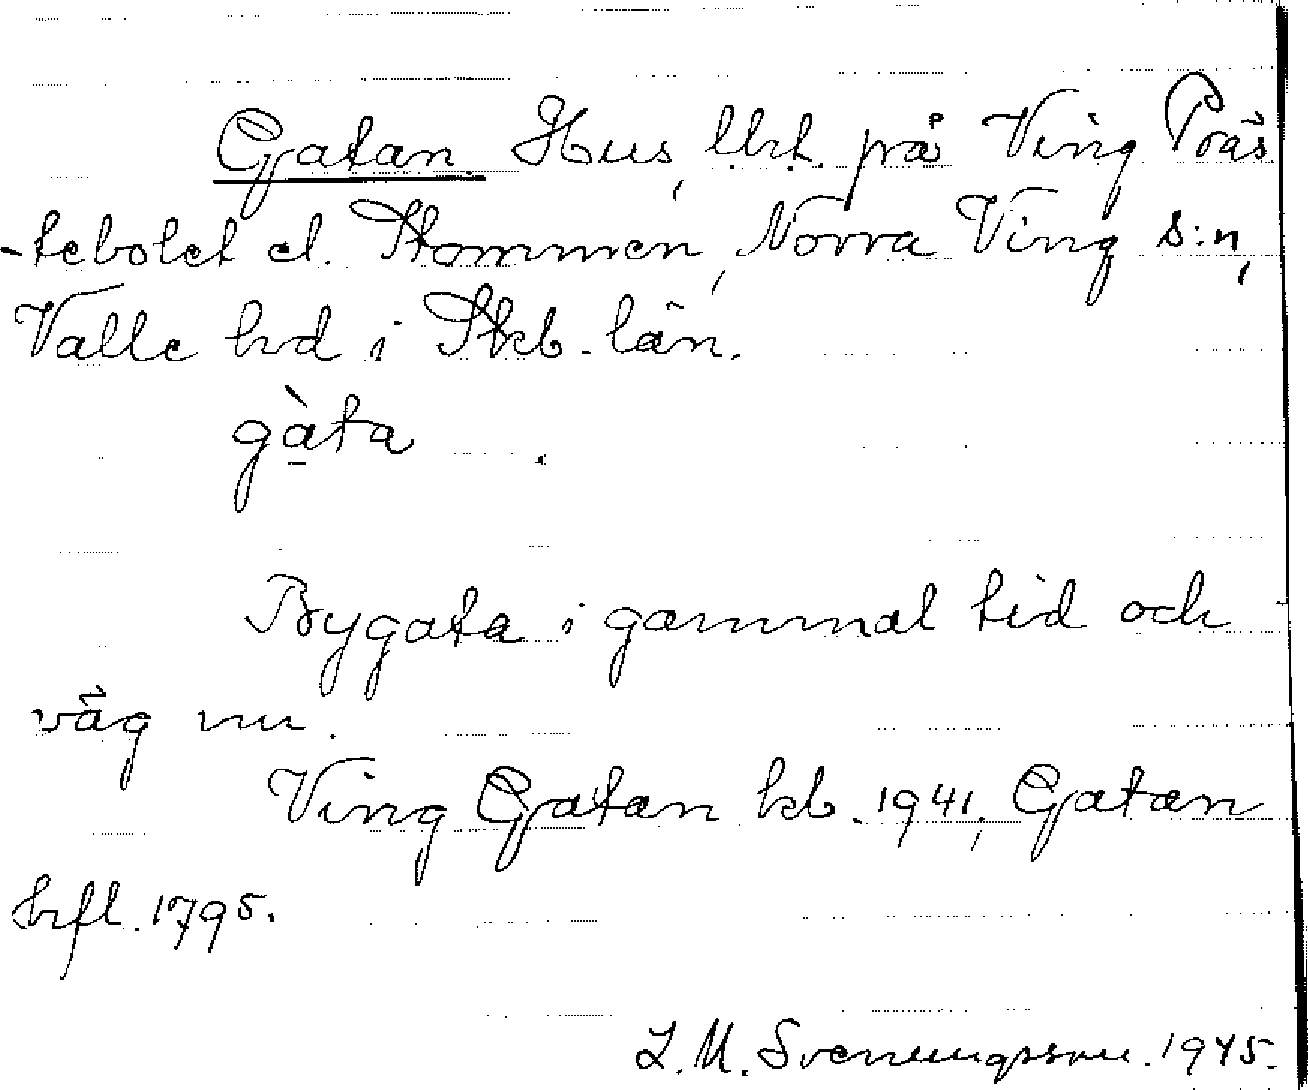 Gatan Hus, lht. på Ving Präs
-tebolet el. Stommen, Norra Ving s:n,
Valle hd i Skb. län.
gàta
Bygata i gammal tid och
väg nu.
Ving Gatan kb. 1941; Gatan
hfl. 1795.
L. M. Svenungsson. 1945.